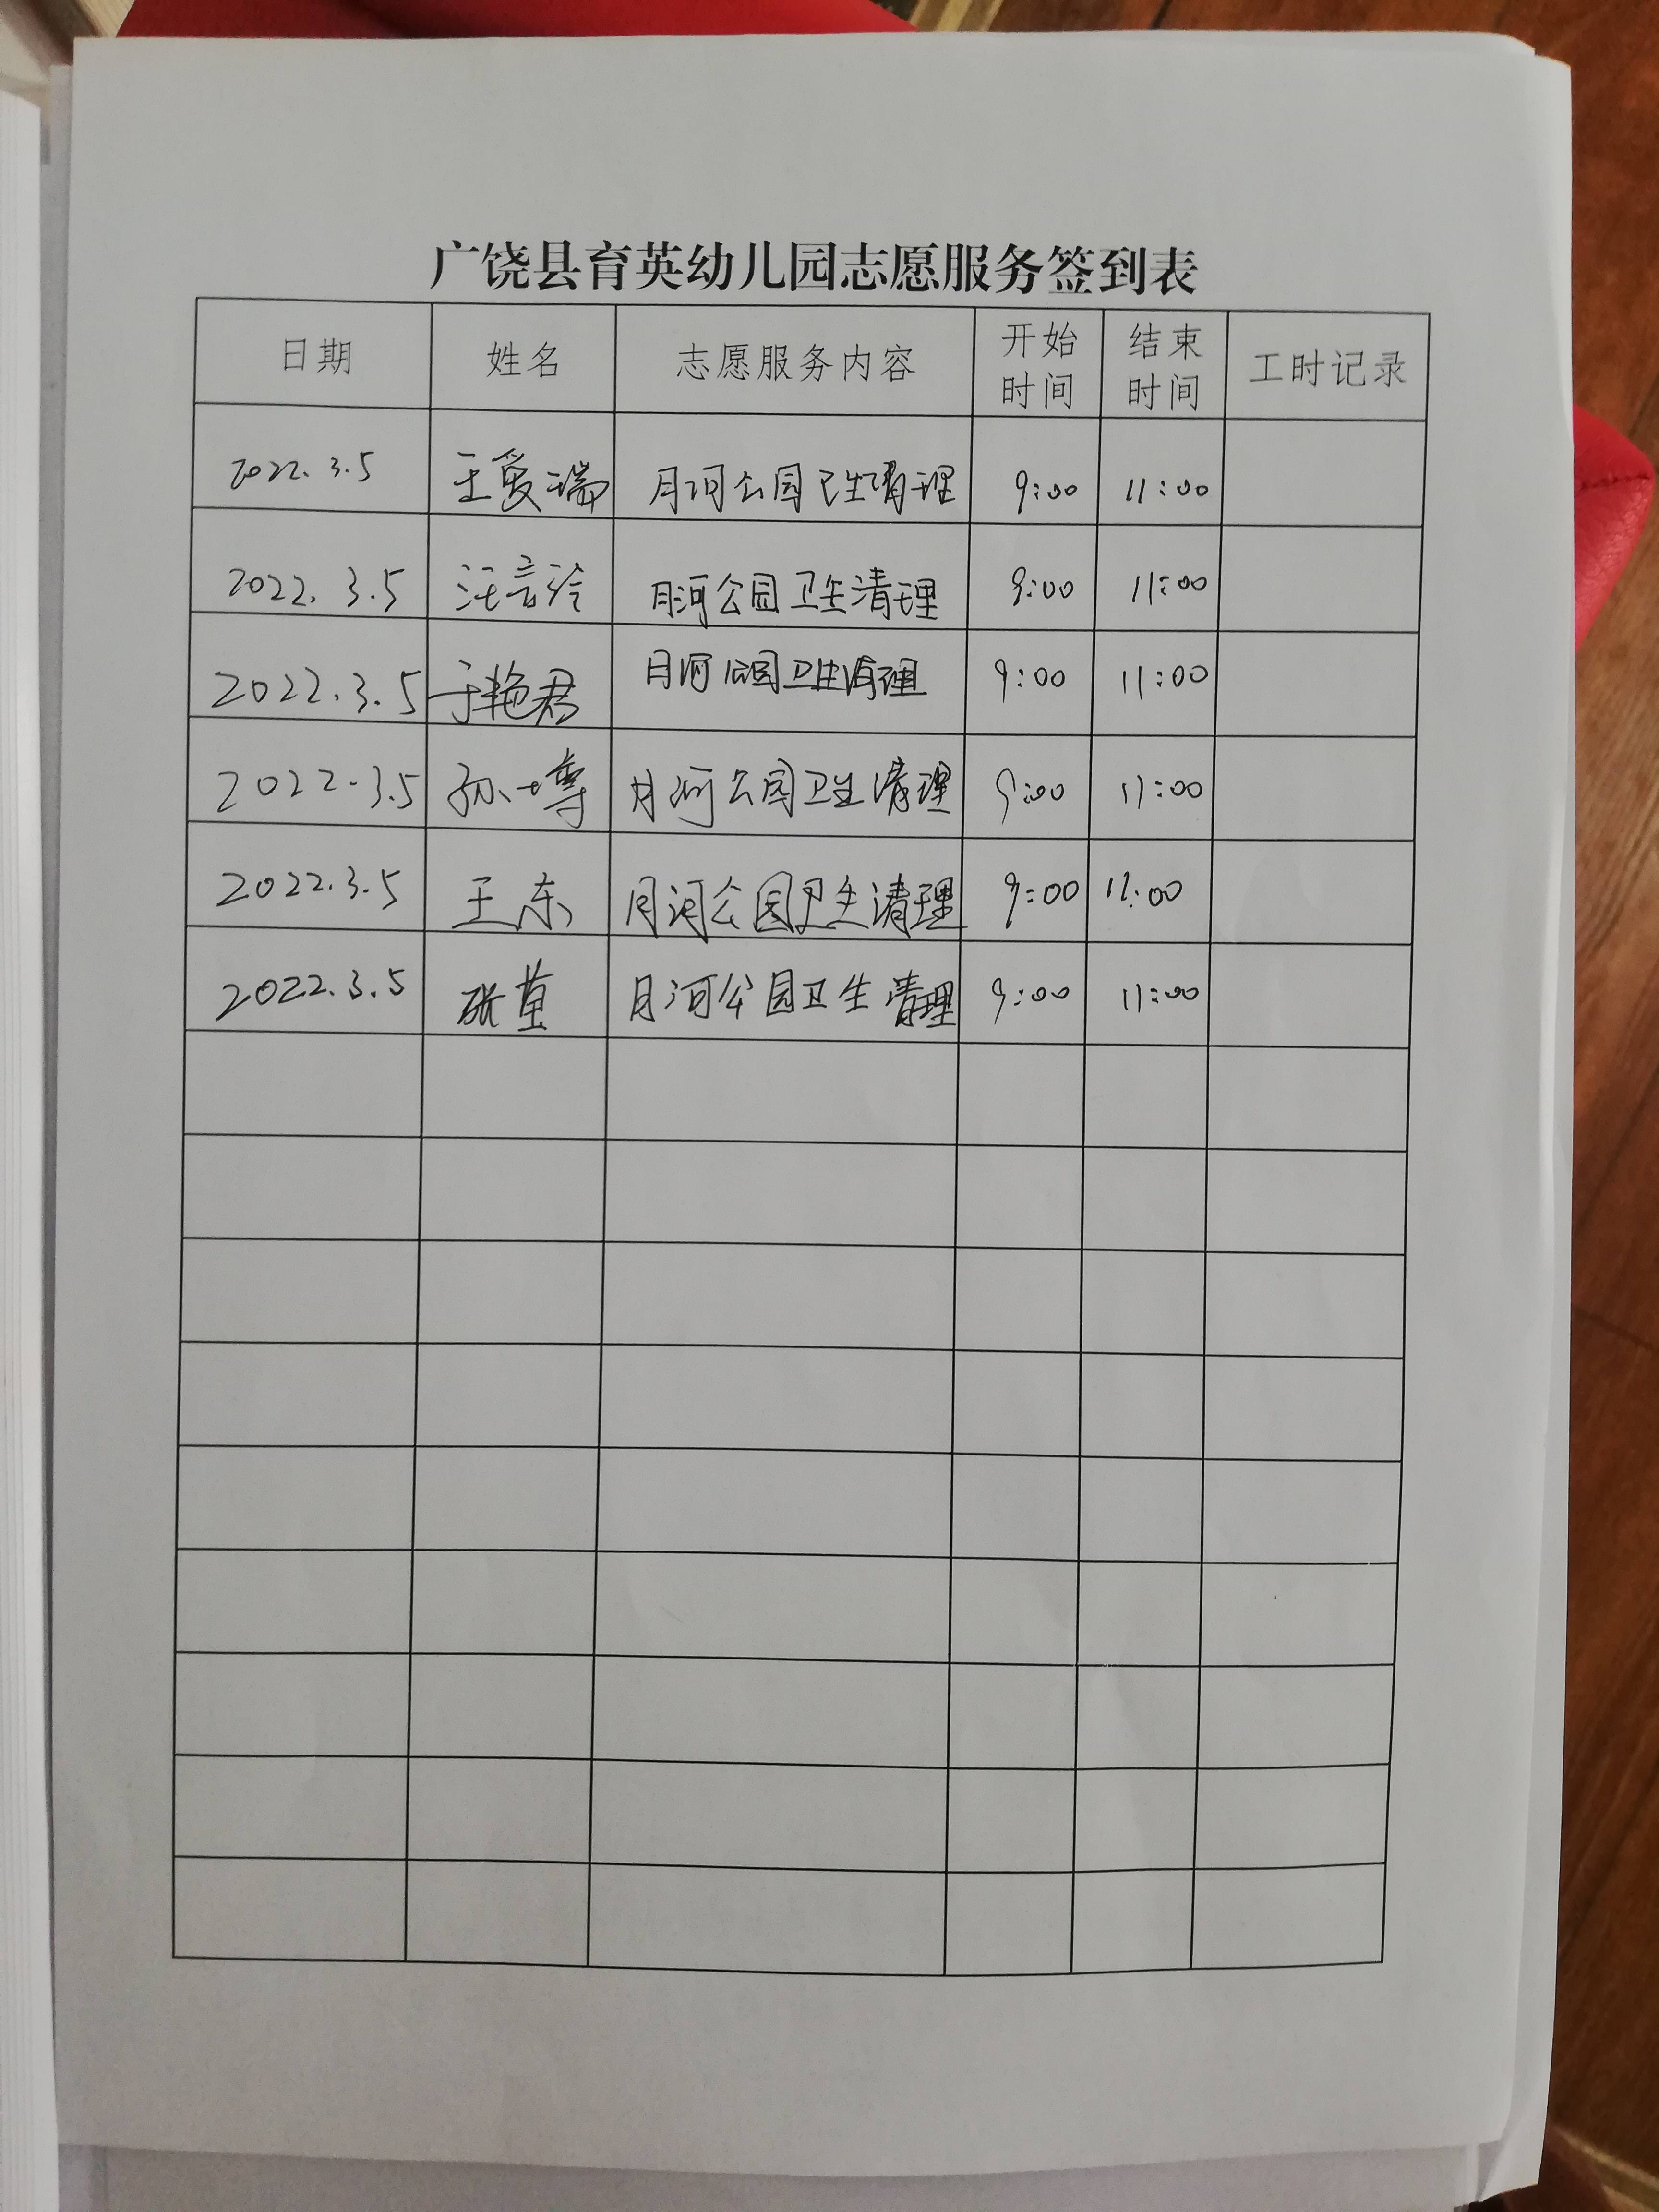 广饶县育英幼儿园志愿服务签到表
日期 姓名 志愿服务内容 开始时间 结束时间 工时记录
2022.3.5 王爱瑞 月河公园卫生清理 9:00 11:00
2022.3.5 汪言冷 月河公园卫生清理 9:00 11:00
2022.3.5 于艳君 月河公园卫生清理 9:00 11:00
2022.3.5 孙一尊 月河公园卫生清理 9:00 11:00
2022.3.5 王东 月河公园卫生清理 9:00 11:00
2022.3.5 张董 月河公园卫生清理 9:00 11:00